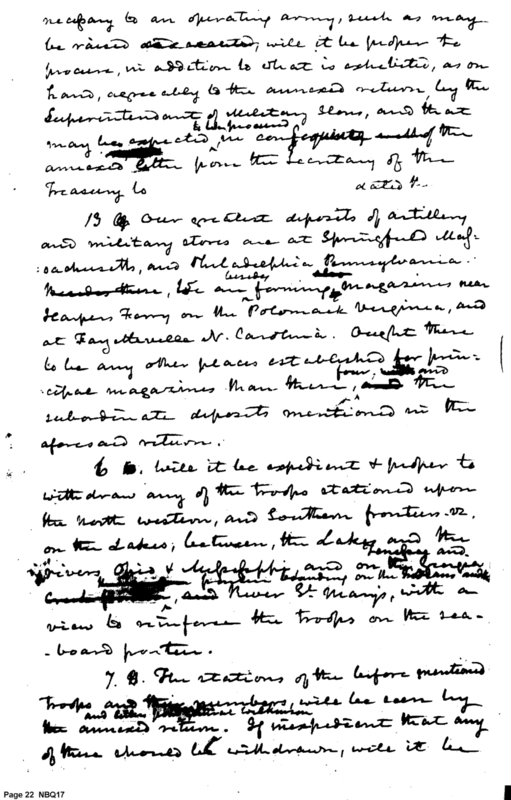 necessary to an operating army, such as may
be raised will it be proper to
procure, in addition to what is exhibited, as on
hand, agreeably to the annexed return, by the
Superintendant of Military Stores, and that
to be procured
may be expected in the
annexed letter from the Secretary of the
Treasury to dated
Our greatest deposits of artillery
and military stores are at Springfield Mas-
:sachusetts, and Philadelphia Pennsylvania.
besides also
Besides these, We are forming magazines near
Harpers Ferry on the Potomack Virginia, and
at Fayetteville N. Carolina. Ought there
to be any other places established for prin-
four, and
:cipal magazines than these, and the
subordinate deposits mentioned in the
aforesaid return.
6 Will it be expedient & proper to
withdraw any of the troops stationed upon
the north western, and Southern frontiers. viz.
on the Lakes, between, the Lakes and the
Tennessee and
rivers Ohio & Mississippi, and on the Georgia
bounding on the Indians
and River St Marys, with a
view to reinforce the troops on the sea-
-board frontier.
7. The stations of the before mentioned
troops and their numbers, will be seen by
and letter
the annexed return. If inexpedient that any
of these should be withdrawn, will it be
Page 22 NBQ17